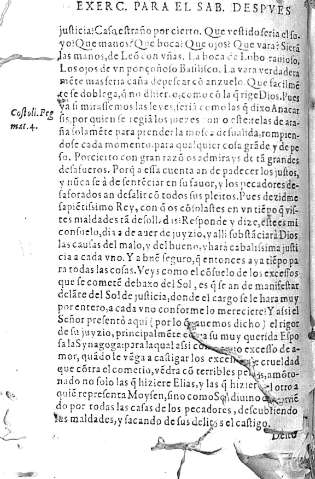 EXERC. PARA EL SAB. DESPVES
justicia: Casa estraño por cierto. Que vestido seria el su-
yo? Que manos? Que boca? Que ojos? Que vara? Seria
las manos, de Leõ con vñas. La boca de Lobo rabioso,
Los ojos de vn põçoñoso Basilisco. La vara verdadera
mẽte mas seria caña de pescar cõ anzuelo. Que facilmẽ
te se doblega, q̃ no dinero, como cõ la q̃ rige Dios. Pues
ya si mirassemos las leyes, seriã como las q̃ dixo Anacar
Costoli. Peg
mat. 4.
sis, por quien se regiã los juezes
ña solamẽte para prender la mosca desualida, rompien-
dose cada momento para qualquier cosa grãde, y de pe
so. Por cierto con gran razõ os admirays de tã grandes
desafueros. Porq̃ a essa cuenta an de padecer los justos,
y nũca se à de sentẽciar en su fauor, y los pecadores de-
saforados an de salir cõ todos sus pleitos. Pues dezid me
sapiẽtissimo Rey, con q̃ os cõsolastes en vn tiẽpo q̃ vis-
tes maldades tã de sol Responde y dize, este es mi
consuelo, dia a de auer de juyzio, y alli substãciarà Dios
las causas del malo, y del bueno, y harà cabalissima justi
cia a cada vno. Y a bnẽ seguro, q̃ entonces aya tiẽpo pa
ra todas las cosas. Veys como el cõsuelo de los excessos
que se cometẽ debaxo del Sol, es q̃ se an de manifestar
delãte del Sol de justicia, donde el cargo se le hara muy
por entero, a cada vno conforme lo mereciere: Y assi el
Señor presentò aqui (por lo q̃ auemos dicho) el rigor
de su juyzio, principalmẽte cõtra su muy querida Espo
sa la Synagoga: para la qual assi como excesso de a-
mor, quãdo le vẽga a castigar los exces crueldad
que cõtra el cometio, vẽdra cõ terribles amõto-
nado no solo las q̃ hiziere Elias, y las q̃ hiziere otro a
quiẽ representa Moysen, sino como Sol diuino
do por todas las casas de los pecadores, descubriendo
sus maldades, y sacando de sus delitos el castigo.
Delto